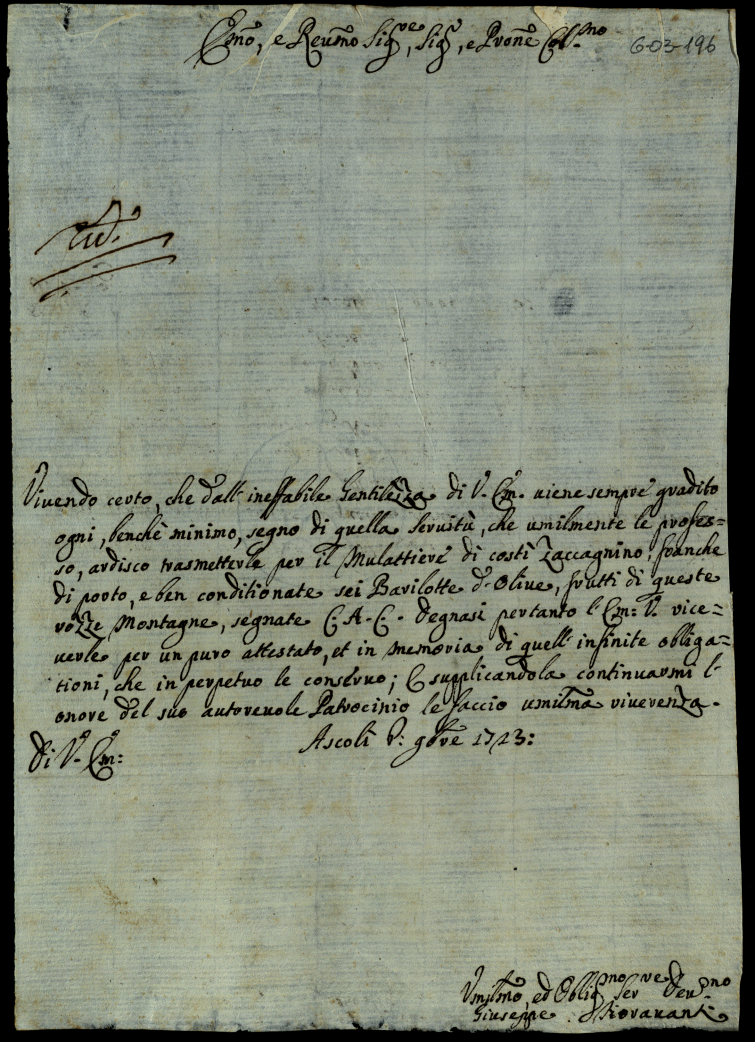 Emõ, e Reu.mo Sig.re, Sig.r, e Pron̄e Col.mo
6-03-196
Vivendo certo, che dall'ineffabile Gentilezza di V.a Em.a uiene sempre gradito
ogni, benchè minimo, segno di quella seruitù, che umilmente le profes=
so, ardisco trasmetterle per il Mulattiere di costì Zaccagnino, franche
di porto, e ben conditionate sei Barilotte d'Olive, frutti di queste
rozze Montagne, segnate C. A. C. Degnasi pertanto l'Em: V.a rice=
uerle per un puro attestato, et in memoria di quell'infinite obliga=
tioni, che in perpetuo le conseruo; E supplicandola continuarmi l'
onore del suo autoreuole Patrocinio le faccio umil.ma riuerenza.
Di V.a Em.a:
Ascoli P.o: 9bre 1723:
Vmil.mo, ed Oblig.mo Ser.re Deu.mo
Giuseppe